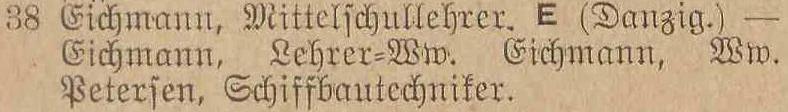 38 Eichmann, Mittelſchullehrer. E (Danzig.) —
Eichmann, Lehrer=Ww. Eichmann, Ww.
Peterſen, Schiffbautechniker.